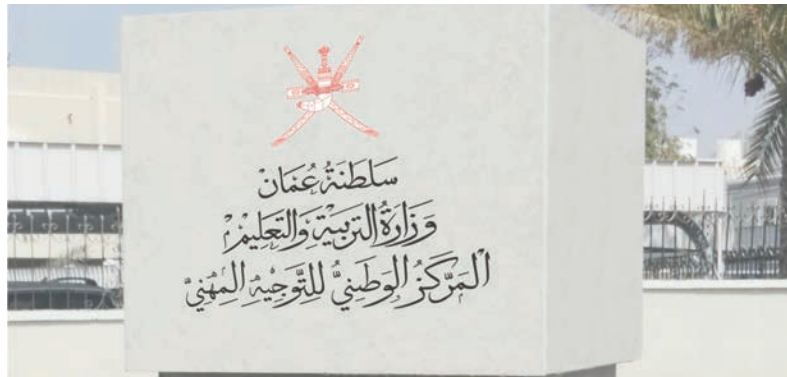 سَلطنَةُ عُمَان
وَزَارَةُ التربيَةِ وَالتعليمْ
المَركَزُ الوَطنيُّ للتَّوجيهِ المِهَنيّ